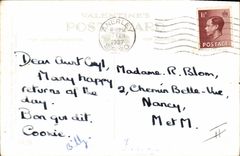 VALENTINE'S
POST CARD
ANERLEY
1937
POSTAGE
Dear Aunt Cyl,
Many happy
returns of the
day.
Bon qui dit.
Cookie.
Madame. R. Blom,
2, Chemin Belle-Vue,
Nancy,
M et M.